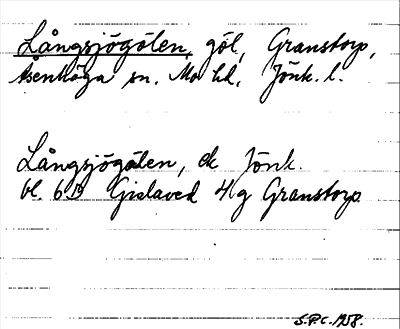 Långsjögölen, göl, Granstorp,
Åsenhöga sn. Mo hd, Jönk. l.
Långsjögölen, ek Jönk.
bl. 6D Gislaved 4g Granstorp
S.P.C. 1958.